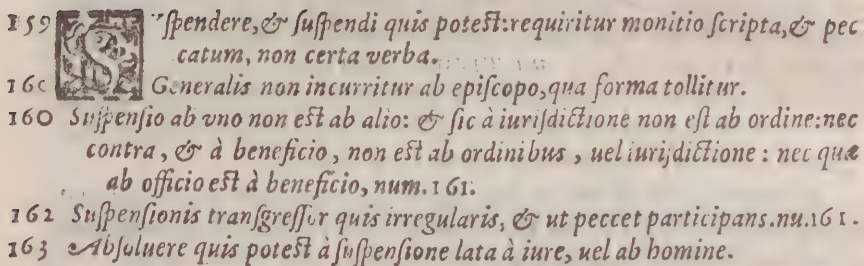 159 Suſpendere, & ſuſpendi quis poteſt: requiritur monitio ſcripta, & pec
catum, non certa verba.
160 Generalis non incurritur ab epiſcopo, qua forma tollitur.
160 Suſpenſio ab vno non eſt ab alio: & ſic à iuriſdictione non eſt ab ordine: nec
contra, & à beneficio, non eſt ab ordinibus, uel iuriſdictione: nec quæ
ab officio eſt à beneficio, num. 161.
162 Suſpenſionis tranſgreſſor quis irregularis, & ut peccet participans. nu. 161.
163 Abſoluere quis poteſt à ſuſpenſione lata à iure, uel ab homine.